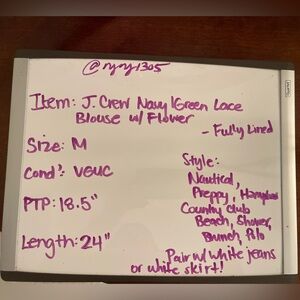 @nyny1305
Item: J. Crew Navy/Green Lace
Blouse w/ Flower
- Fully Lined
Size: M
Cond': VGUC
PTP: 18.5"
Length: 24"
Style:
Nautical,
Preppy, Hamptons
Country Club
Beach, Shower,
Brunch, Polo
Pair w/ white jeans
or white skirt!